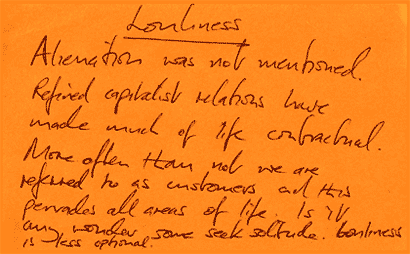 Lonliness
Alienation was not mentioned.
Refined capitalist relations have
made much of life contractual.
More often than not we are
referred to as customers and this
pervades all areas of life. Is it
any wonder some seek solitude. Lonliness
is less optional.